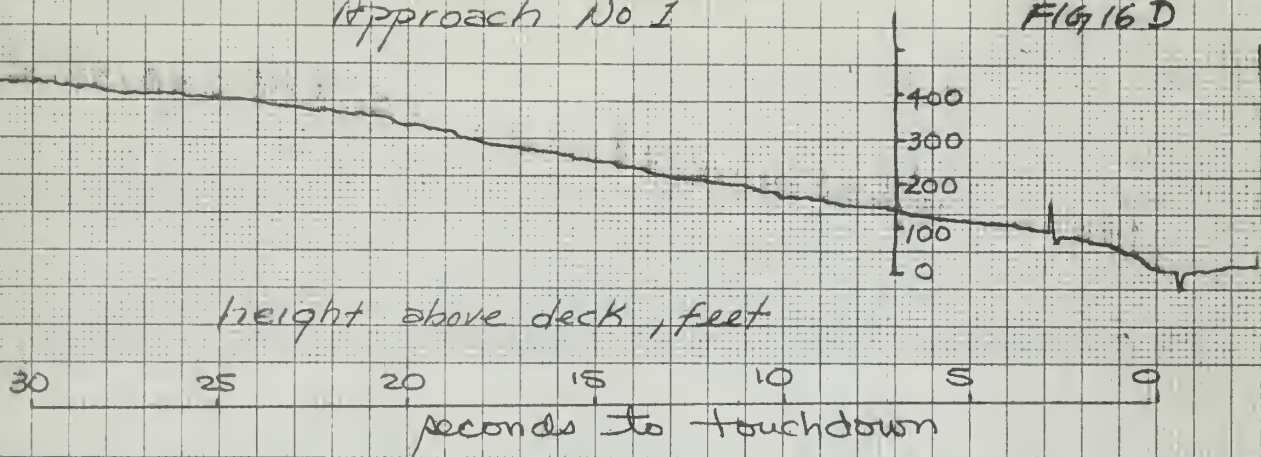 Approach No 1
FIG 16 D
400
300
200
100
0
height above deck, feet
30 25 20 15 10 5 0
seconds to touchdown